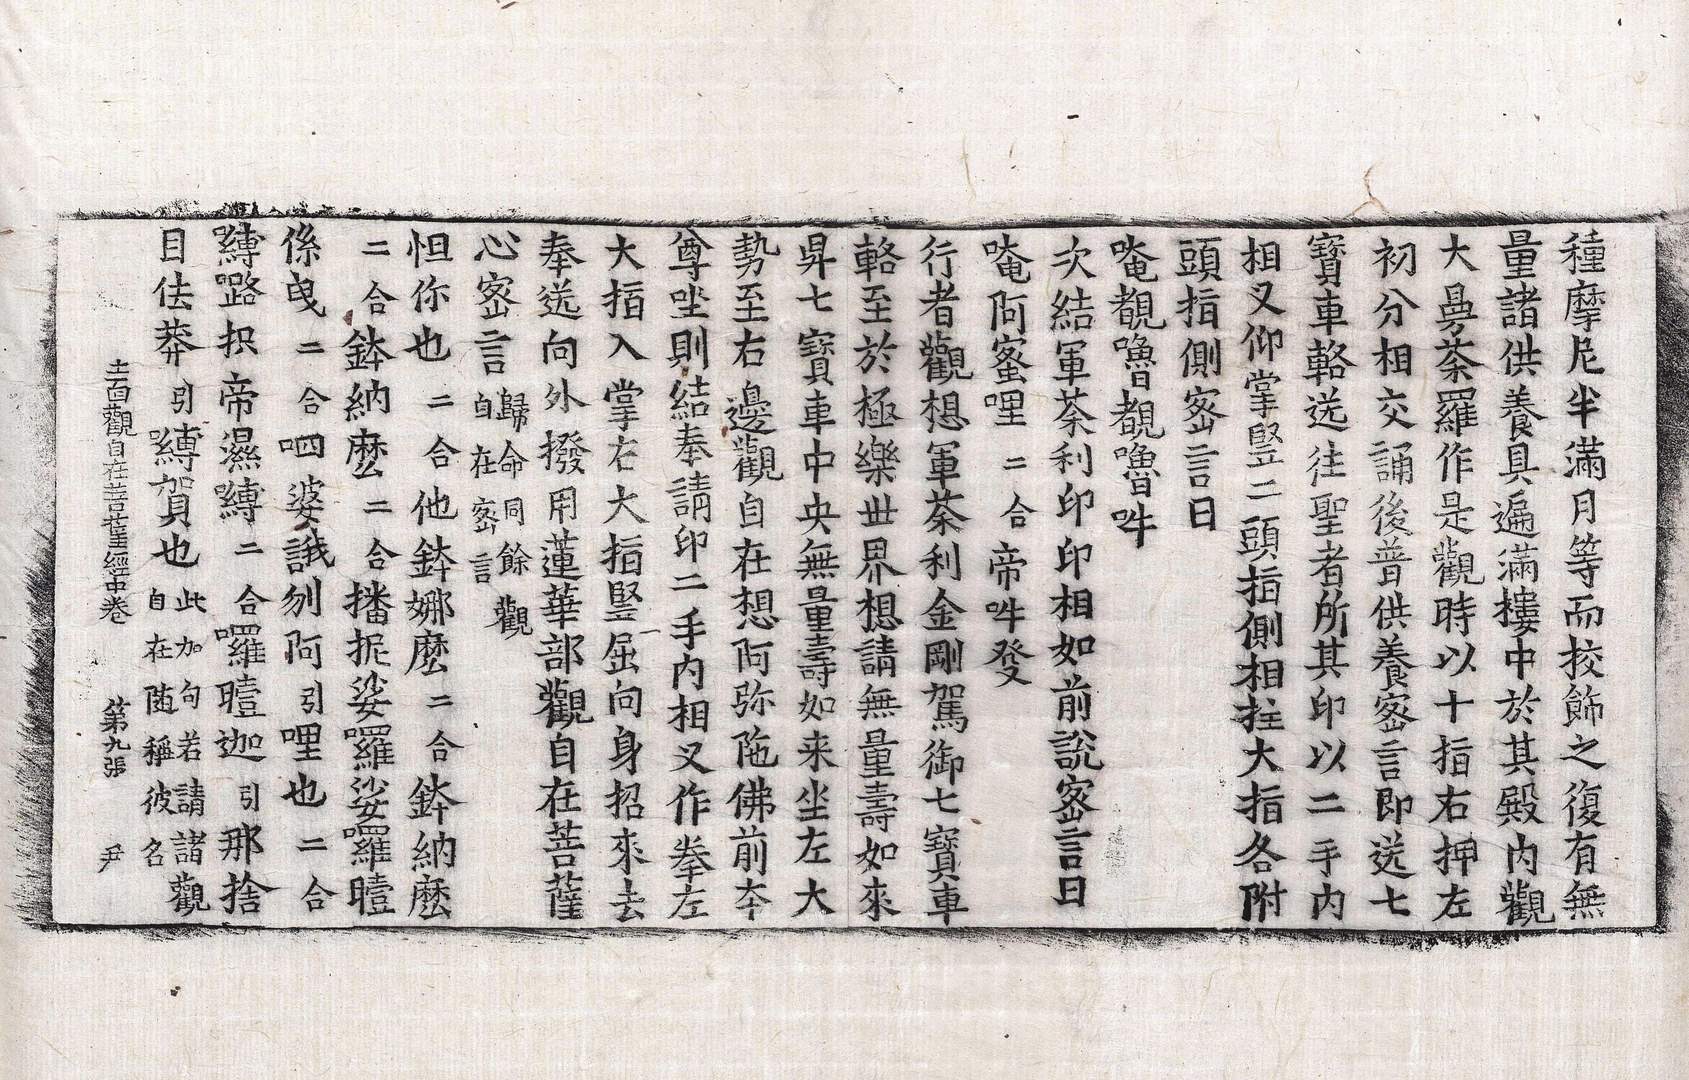 種摩尼半滿月等而挍飾之復有無
量諸供養具遍滿樓中於其殿內觀
大曼荼羅作是觀時以十指右押左
初分相交誦後普供養密言即送七
寶車輅送往聖者所其印以二手內
相叉仰掌竪二頭指側相拄大指各附
頭指側密言曰
唵覩嚕覩嚕吽
次結軍荼利印印相如前說密言曰
唵阿蜜哩二合帝吽癹
行者觀想軍荼利金剛駕御七寶車
輅至於極樂世界想請無量壽如來
昇七寶車中央無量壽如来坐左大
勢至右邊觀自在想阿弥陁佛前夲
尊坐則結奉請印二手內相叉作拳左
大指入掌右大指竪屈向身招來去
奉送向外撥用蓮華部觀自在菩薩
心密言歸命同餘觀自在密言
怛你也二合他鉢娜麽二合鉢納麽
二合鉢納麽二合播抳娑囉娑囉曀
係曳二合呬婆誐刎阿引哩也二合
嚩路抧帝濕嚩二合囉曀迦引那捨
目佉莽引嚩賀也此加句若請諸觀自在随稱彼名
十一面觀自在菩薩經中卷 第九張 尹